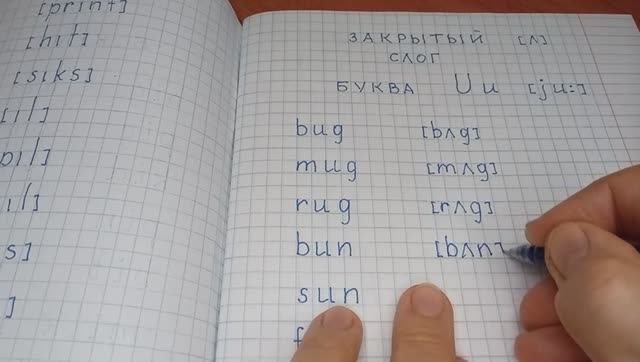 [print]
[hit]
[siks]
ЗАКРЫТЫЙ [ʌ]
СЛОГ
БУКВА Uu [ju:]
bug [bʌg]
mug [mʌg]
rug [rʌg]
bun [bʌn]
sun